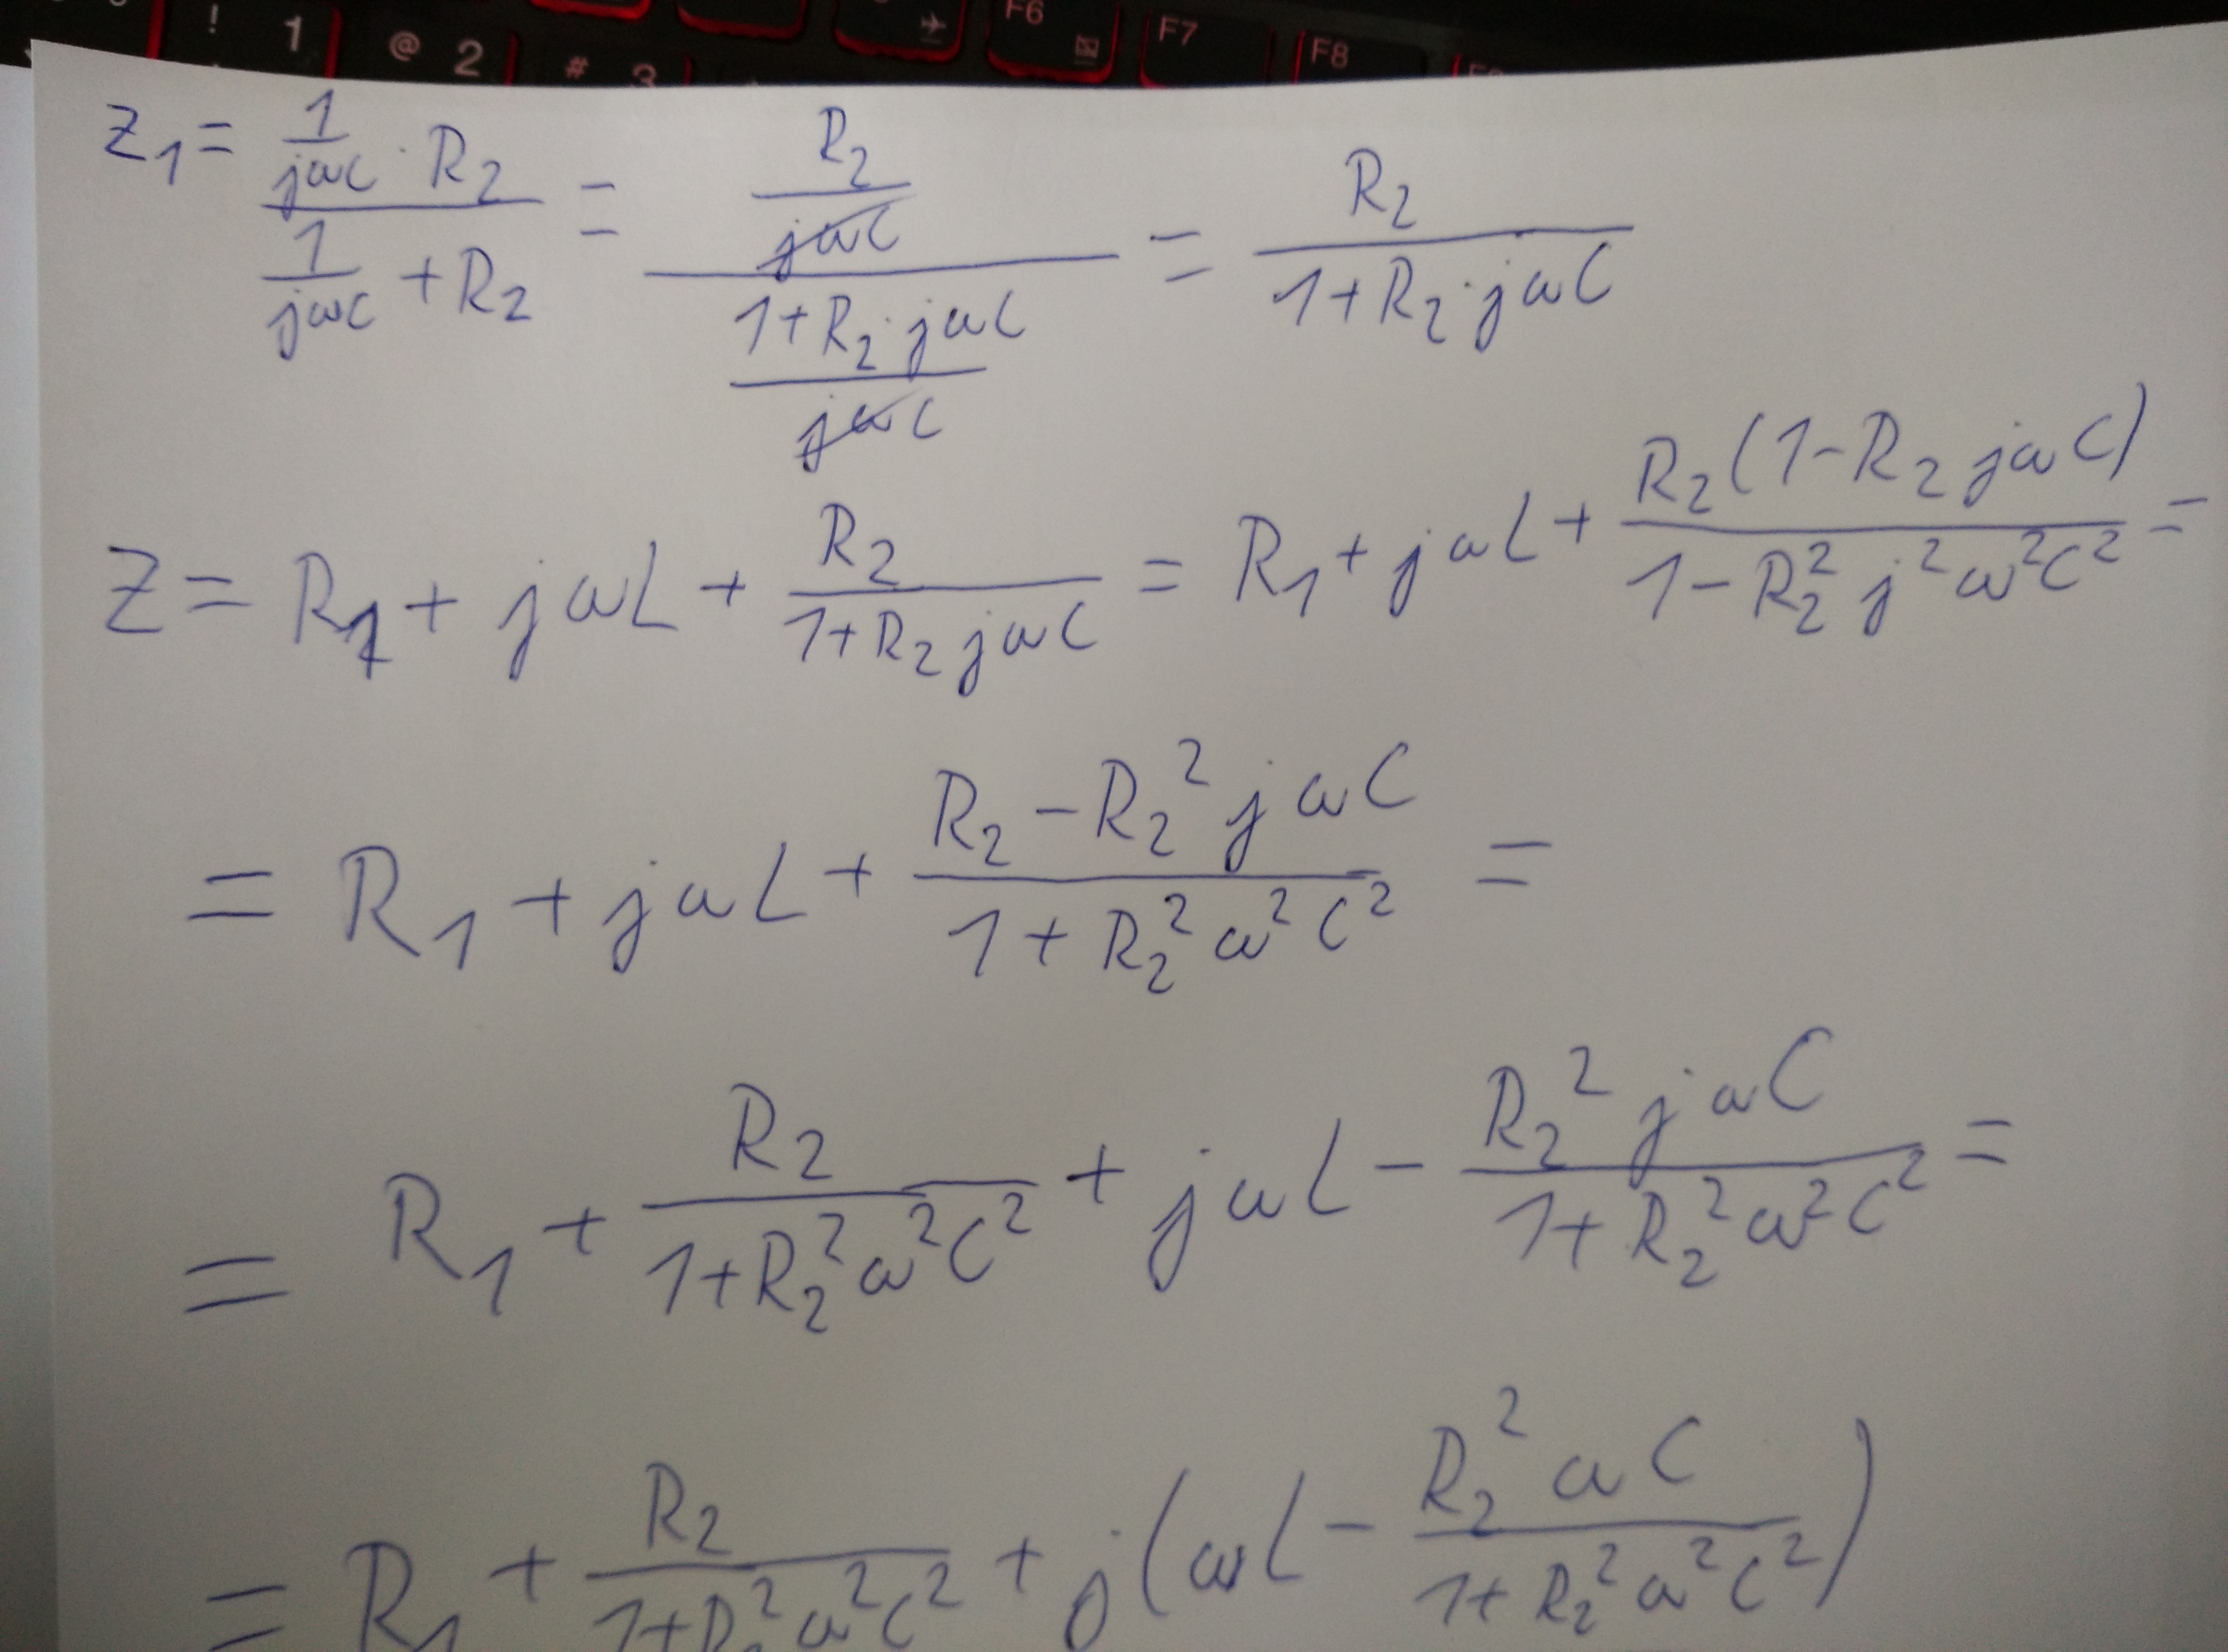 ! 1 @ 2 # 3 F6 F7 F8
Z₁ = (1/(jωC) · R₂)/(1/(jωC) + R₂) = (R₂/(jωC))/((1+R₂·jωC)/(jωC)) = R₂/(1+R₂·jωC)
Z = R₁ + jωL + R₂/(1+R₂jωC) = R₁ + jωL + R₂(1-R₂jωC)/(1-R₂²j²ω²C²) =
= R₁ + jωL + (R₂-R₂²jωC)/(1+R₂²ω²C²) =
= R₁ + R₂/(1+R₂²ω²C²) + jωL - R₂²jωC/(1+R₂²ω²C²) =
= R₁ + R₂/(1+R₂²ω²C²) + j(ωL - R₂²ωC/(1+R₂²ω²C²))